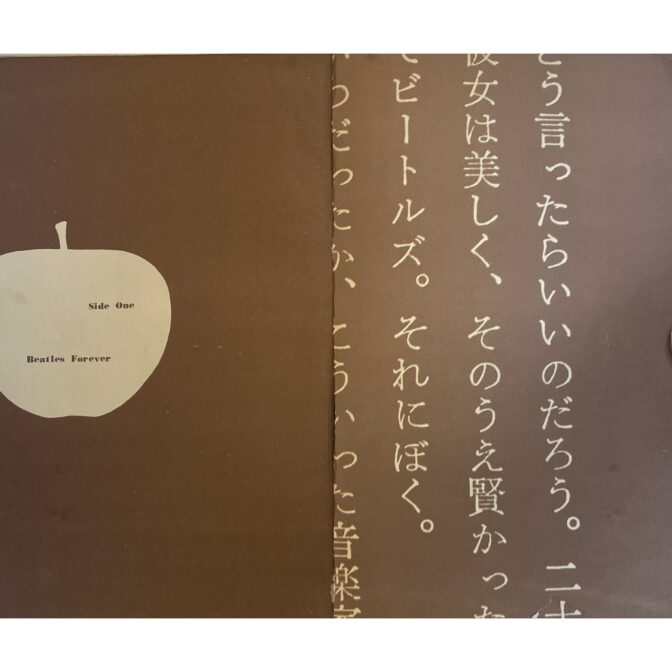 Side One
Beatles Forever
どう言ったらいいのだろう。二十
彼女は美しく、そのうえ賢かった
てビートルズ。それにぼく。
つだったか、こういった音楽家